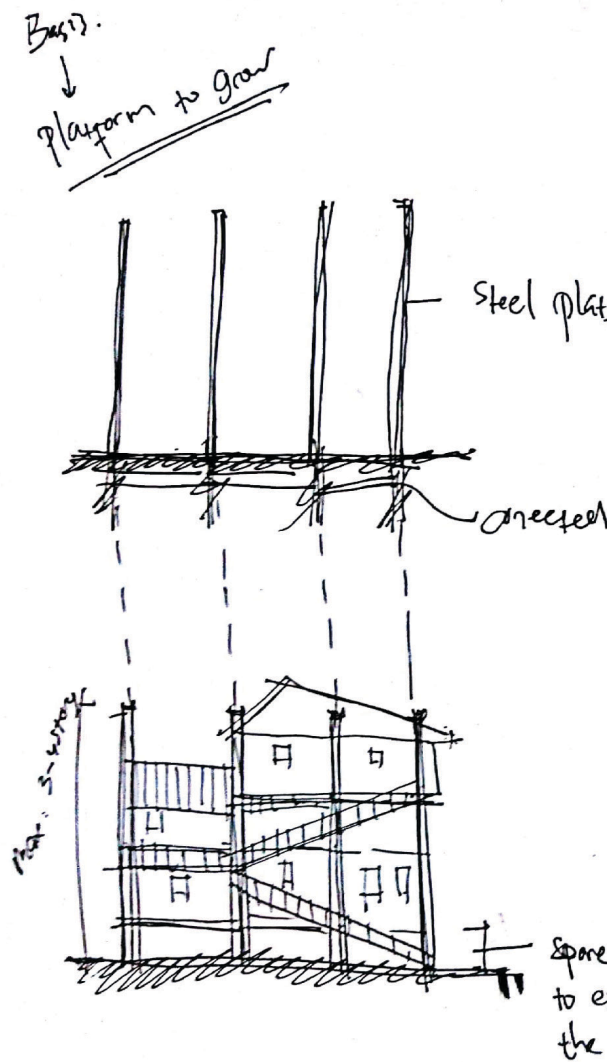 Basis.
platform to grow
Steel plat
Max. 3-storey
spare
to e
the